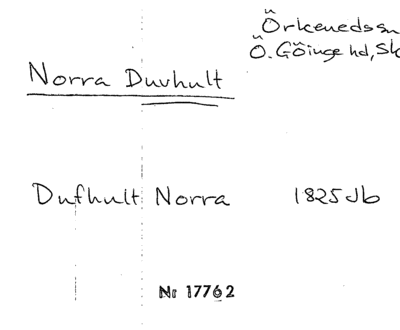 Örkenedssn
Ö. Göinge hd, Sk
Norra Duvhult
Dufhult Norra 1825 Jb
Nr 17762